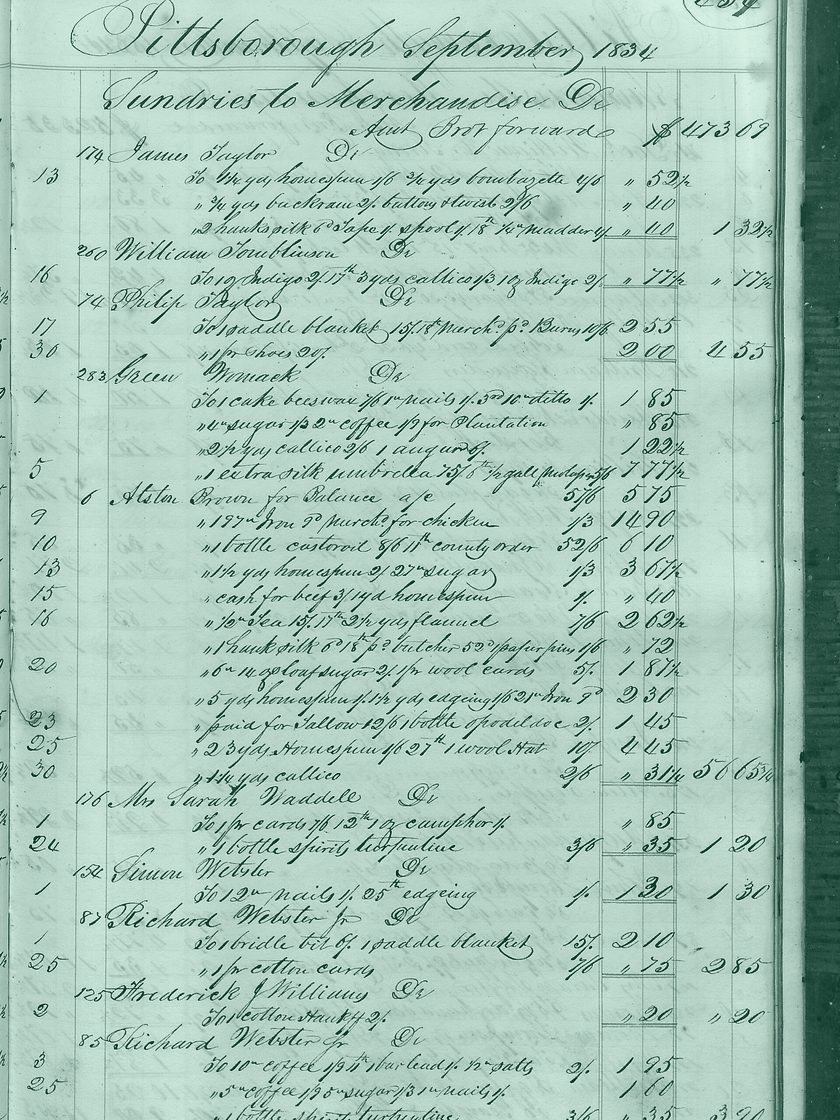 Pittsborough September, 1834
Sundries to Merchandise Dr
Amt Brot forward $ 473 69
174 James Taylor Dr
13 To 1¼ yds homespun 1/6 ¾ yds bombazette 4/6 " 52½
" ¾ yds buckram 2/. buttons & twist 2/6 " 40
" 2 hanks silk 6d Tape 1/. spool 1/. 18th ¼ Madder " 40 1 32½
260 William Tomblinson Dr
16 To 1 oz Indigo 2/. 17th 3 yds callico 1/3 1 oz Indigo 2/. " 77½ " 77½
74 Philip Taylor Dr
17 To 1 saddle blanket 15/. 18th Merchd pd Burns 10/6 2 55
30 " 1 pr shoes 20/. 2 00 4 55
283 Green Womack Dr
1 To 1 cake beeswax 7/6 1 nails 1/. 3rd 10 ditto 1/. 1 85
" 4 sugar 1/3 2 coffee 1/9 for Plantation " 85
" 2½ yds callico 2/6 1 augur 6/. 1 22½
5 " 1 extra silk umbrella 75/. 6th ½ gall Molases 5/6 7 77½
6 Alston Brown for Balance a/c 57/6 5 75
9 " 197 Iron 9d Merchd for chicken 1/3 14 90
10 " 1 bottle castoroil 8/6 11th county order 52/6 6 10
13 " 1½ yds homespun 2/. 27 sugar 1/3 3 67½
15 " cash for beef 3/. 1 yd homespun 1/. " 40
16 " ½ Tea 15/. 17th 2½ yds flannel 7/6 2 62½
" 1 hank silk 6d 18th pd butcher 52d 1 paper pins 1/6 " 72
20 " 6 14 oz loaf sugar 2/. 1 pr wool cards 5/. 1 87½
" 5 yds homespun 1/. 1½ yds edgeing 1/6 21 Iron 9d 2 30
23 " paid for Tallow 12/6 1 bottle opodeldoc 2/. 1 45
25 " 23 yds Homespun 1/6 27th 1 wool Hat 10/. 4 45
30 " 1¼ yds callico 2/6 " 31¼ 56 65¼
176 Mrs Sarah Waddell Dr
1 To 1 pr cards 7/6 12th 1 oz camphor 1/. " 85
24 " 1 bottle spirits turpentine 3/6 " 35 1 20
154 Simon Webster Dr
1 To 12 nails 1/. 25th edgeing 1/. 1 30 1 30
87 Richard Webster Jr Dr
1 To 1 bridle bit 6/. 1 saddle blanket 15/. 2 10
25 " 1 pr cotton cards 7/6 " 75 2 85
125 Frederick J Williams Dr
2 To 1 cotton Hankf 2/. " 20 " 20
85 Richard Webster Sr Dr
3 To 10 coffee 1/9 11th 1 bar lead 1/. ½ salts 2/. 1 95
25 " 5 coffee 1/9 5 sugar 1/3 1 nails 1/. 1 60
" 1 bottle spirits turpentine 3/6 " 35 3 90